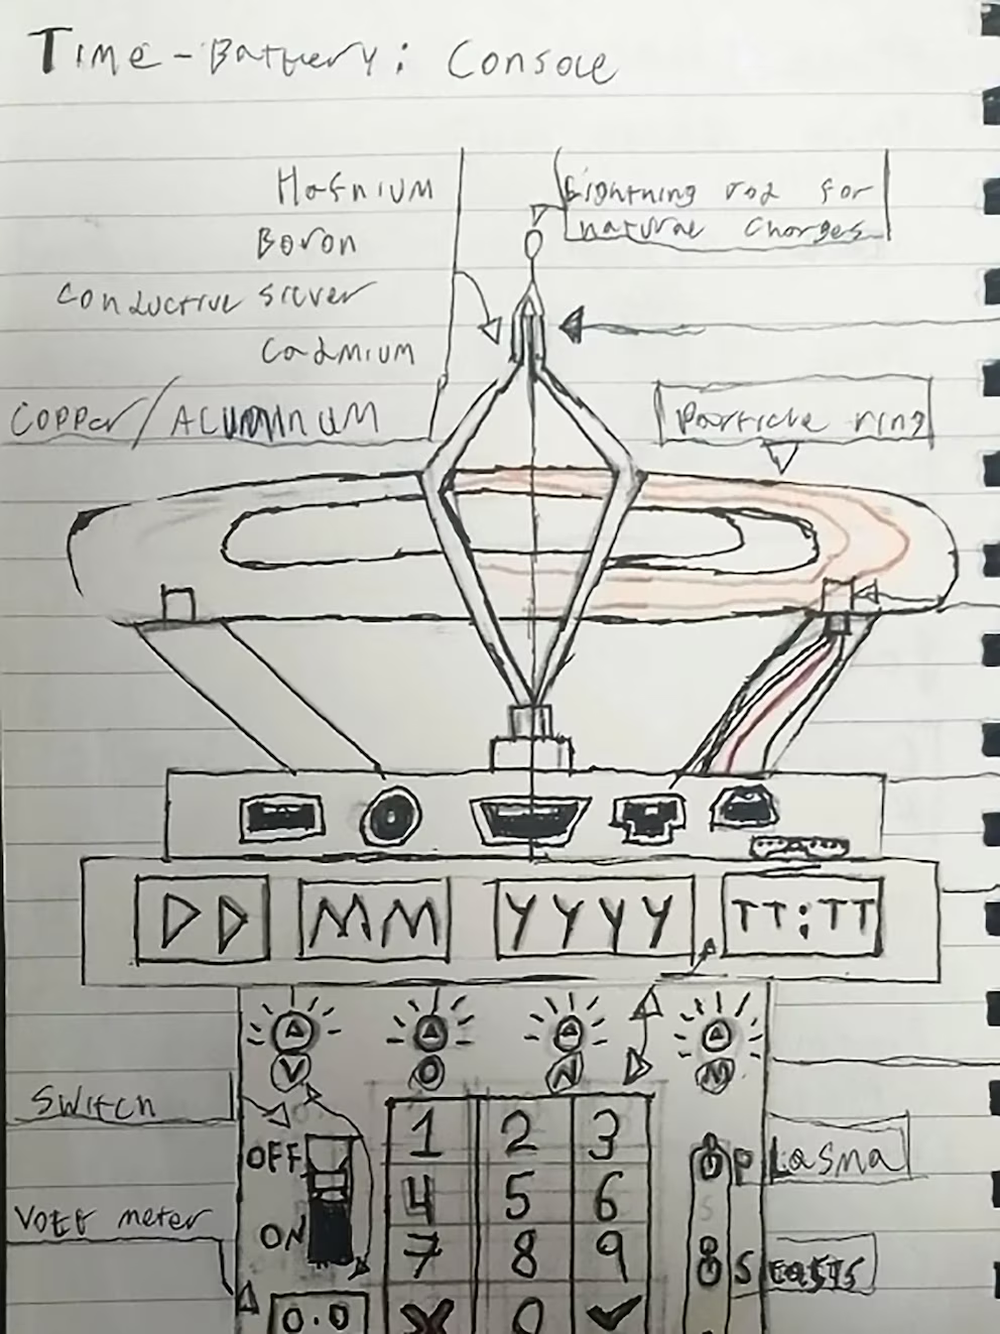 Time-Battery: Console
Hafnium
Boron
Conductive silver
Cadmium
Copper/Aluminum
Lightning rod for
natural charges
Particle ring
DD MM YYYY TT:TT
V O N M
Switch
OFF
ON
Volt meter
0.0
1 2 3
4 5 6
7 8 9
X 0 ✓
Plasma
S